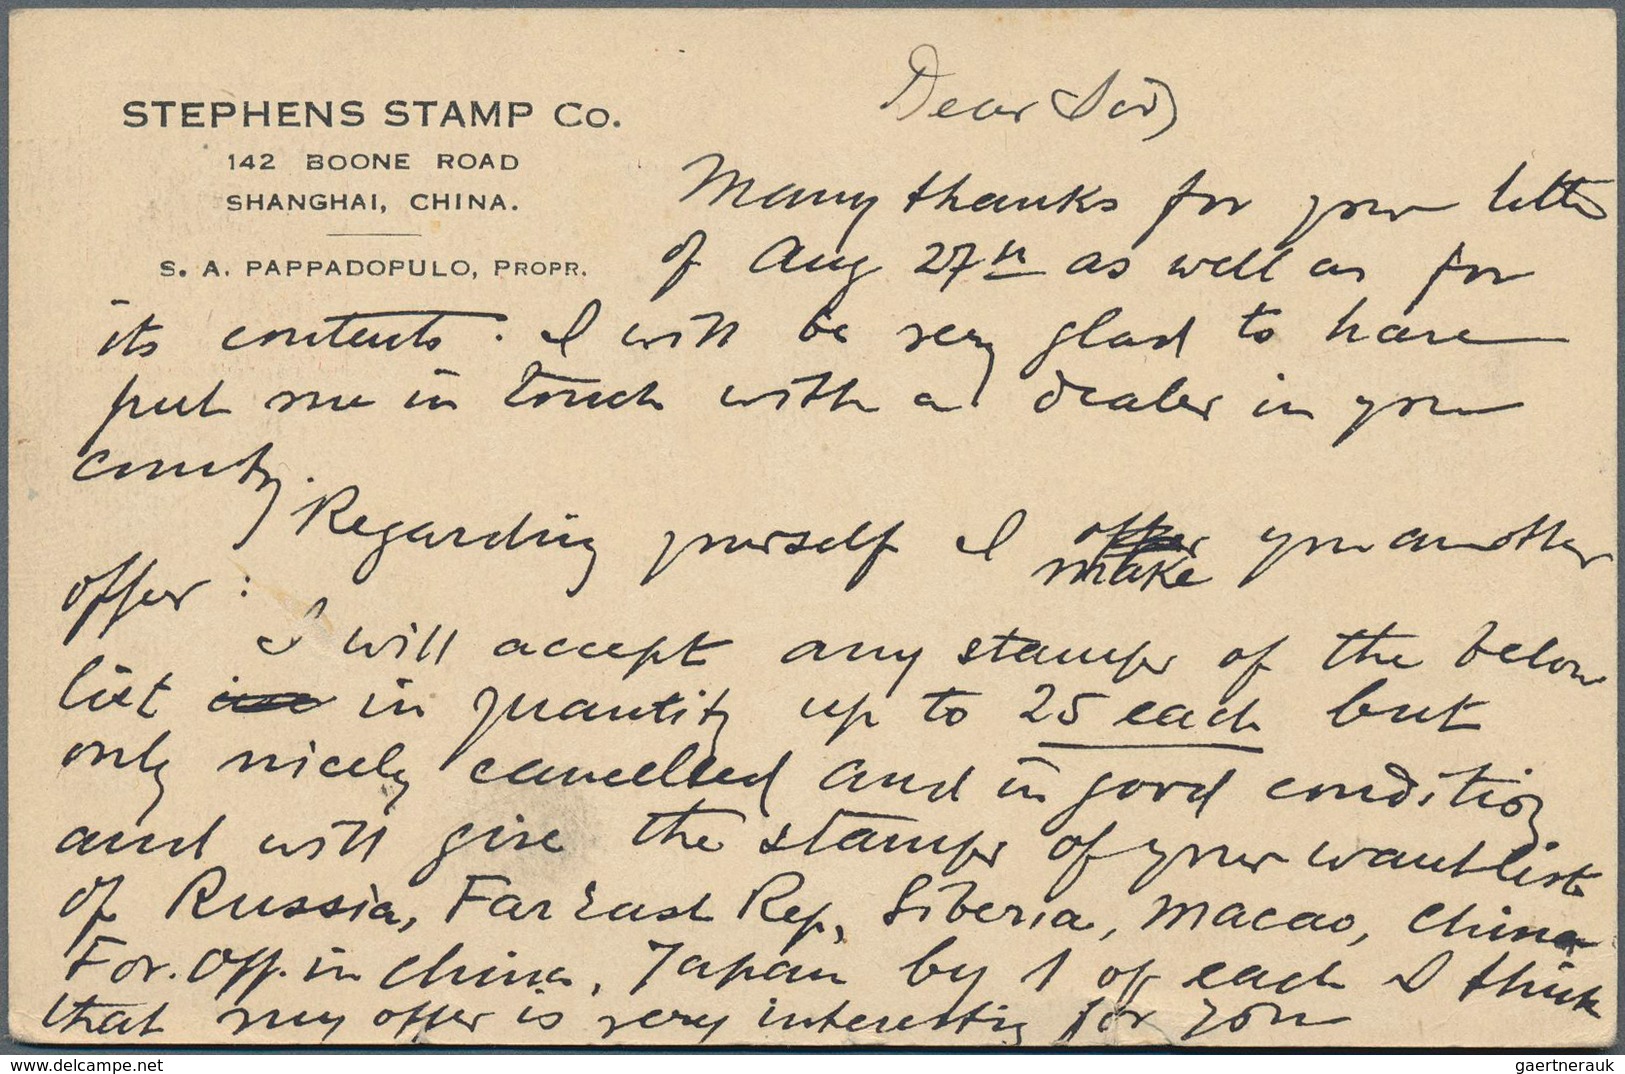 STEPHENS STAMP Co.
142 BOONE ROAD
SHANGHAI, CHINA.
S. A. PAPPADOPULO, PROPR.
Dear Sir,
Many thanks for your letter
of Aug 27th as well as for
its contents. I will be very glad to have
put me in touch with a dealer in your
country.
Regarding yourself I offer you another
make
offer :
I will accept any stamps of the below
list in quantity up to 25 each but
only nicely cancelled and in good condition
and will give the stamps of your wantlist
of Russia, Far East Rep, Siberia, Macao, China
For. Off. in China, Japan by 1 of each I think
that my offer is very interesting for you
delcampe.net
gaertnerauk